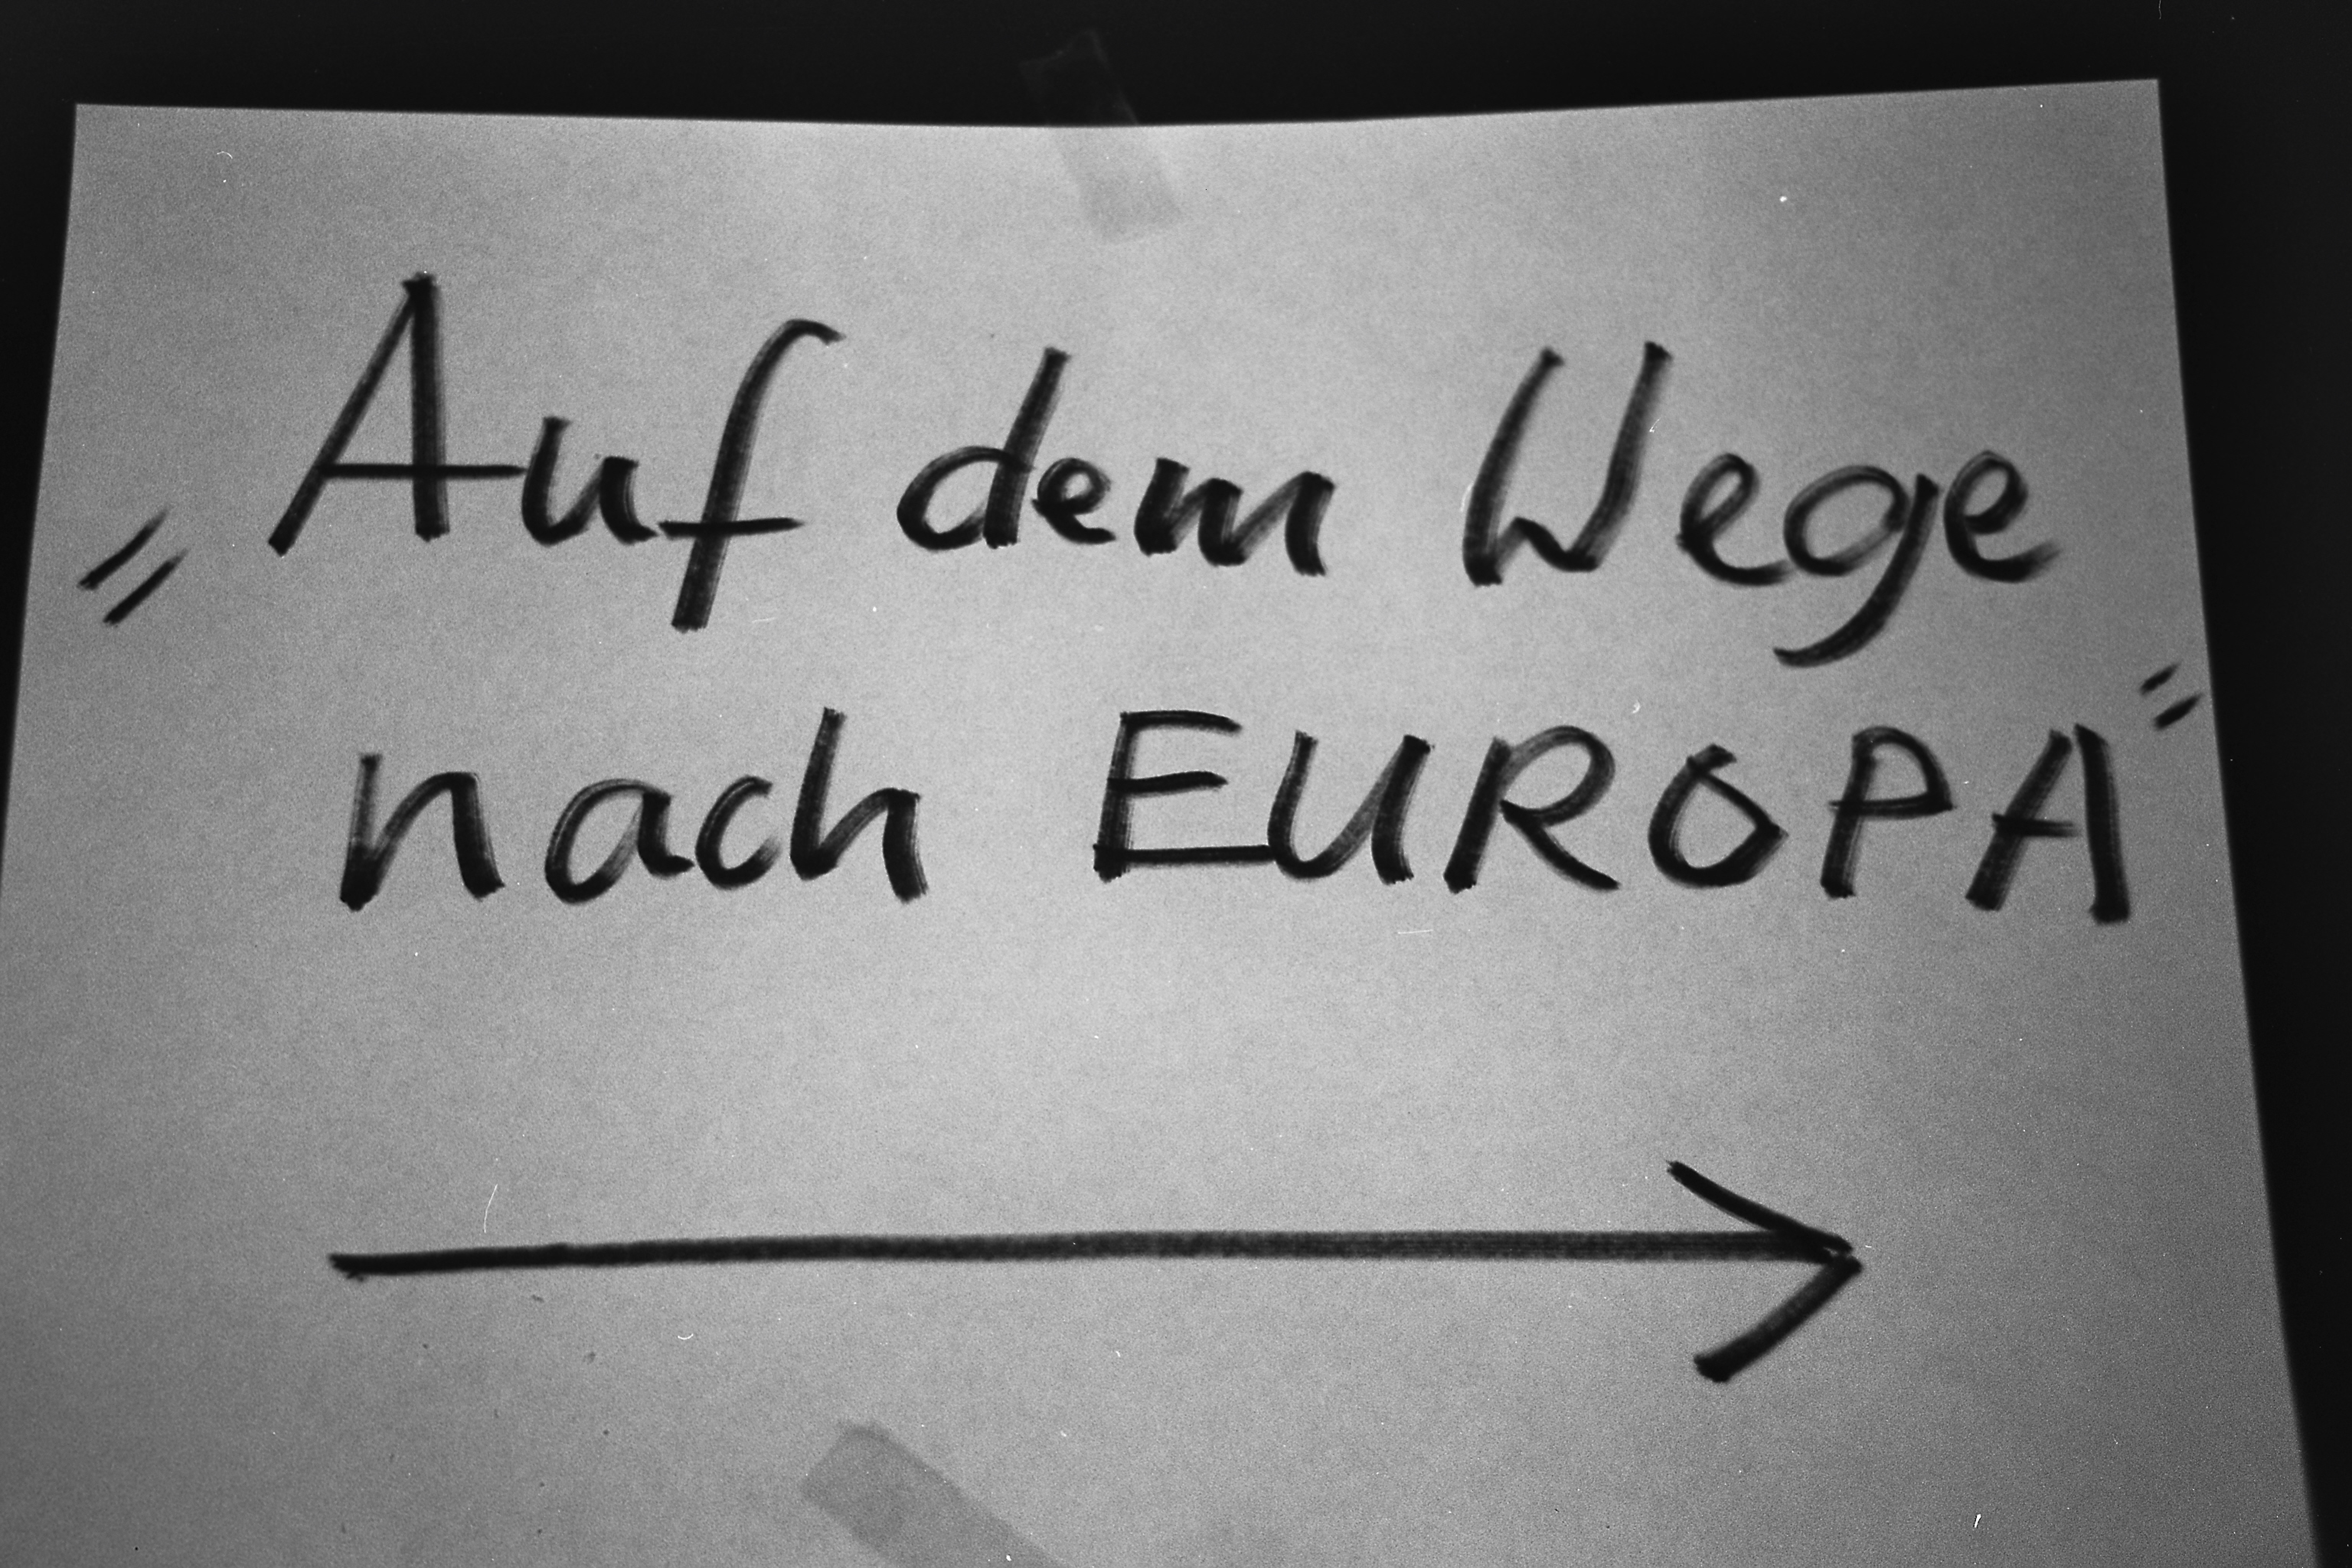 „Auf dem Wege
nach EUROPA“